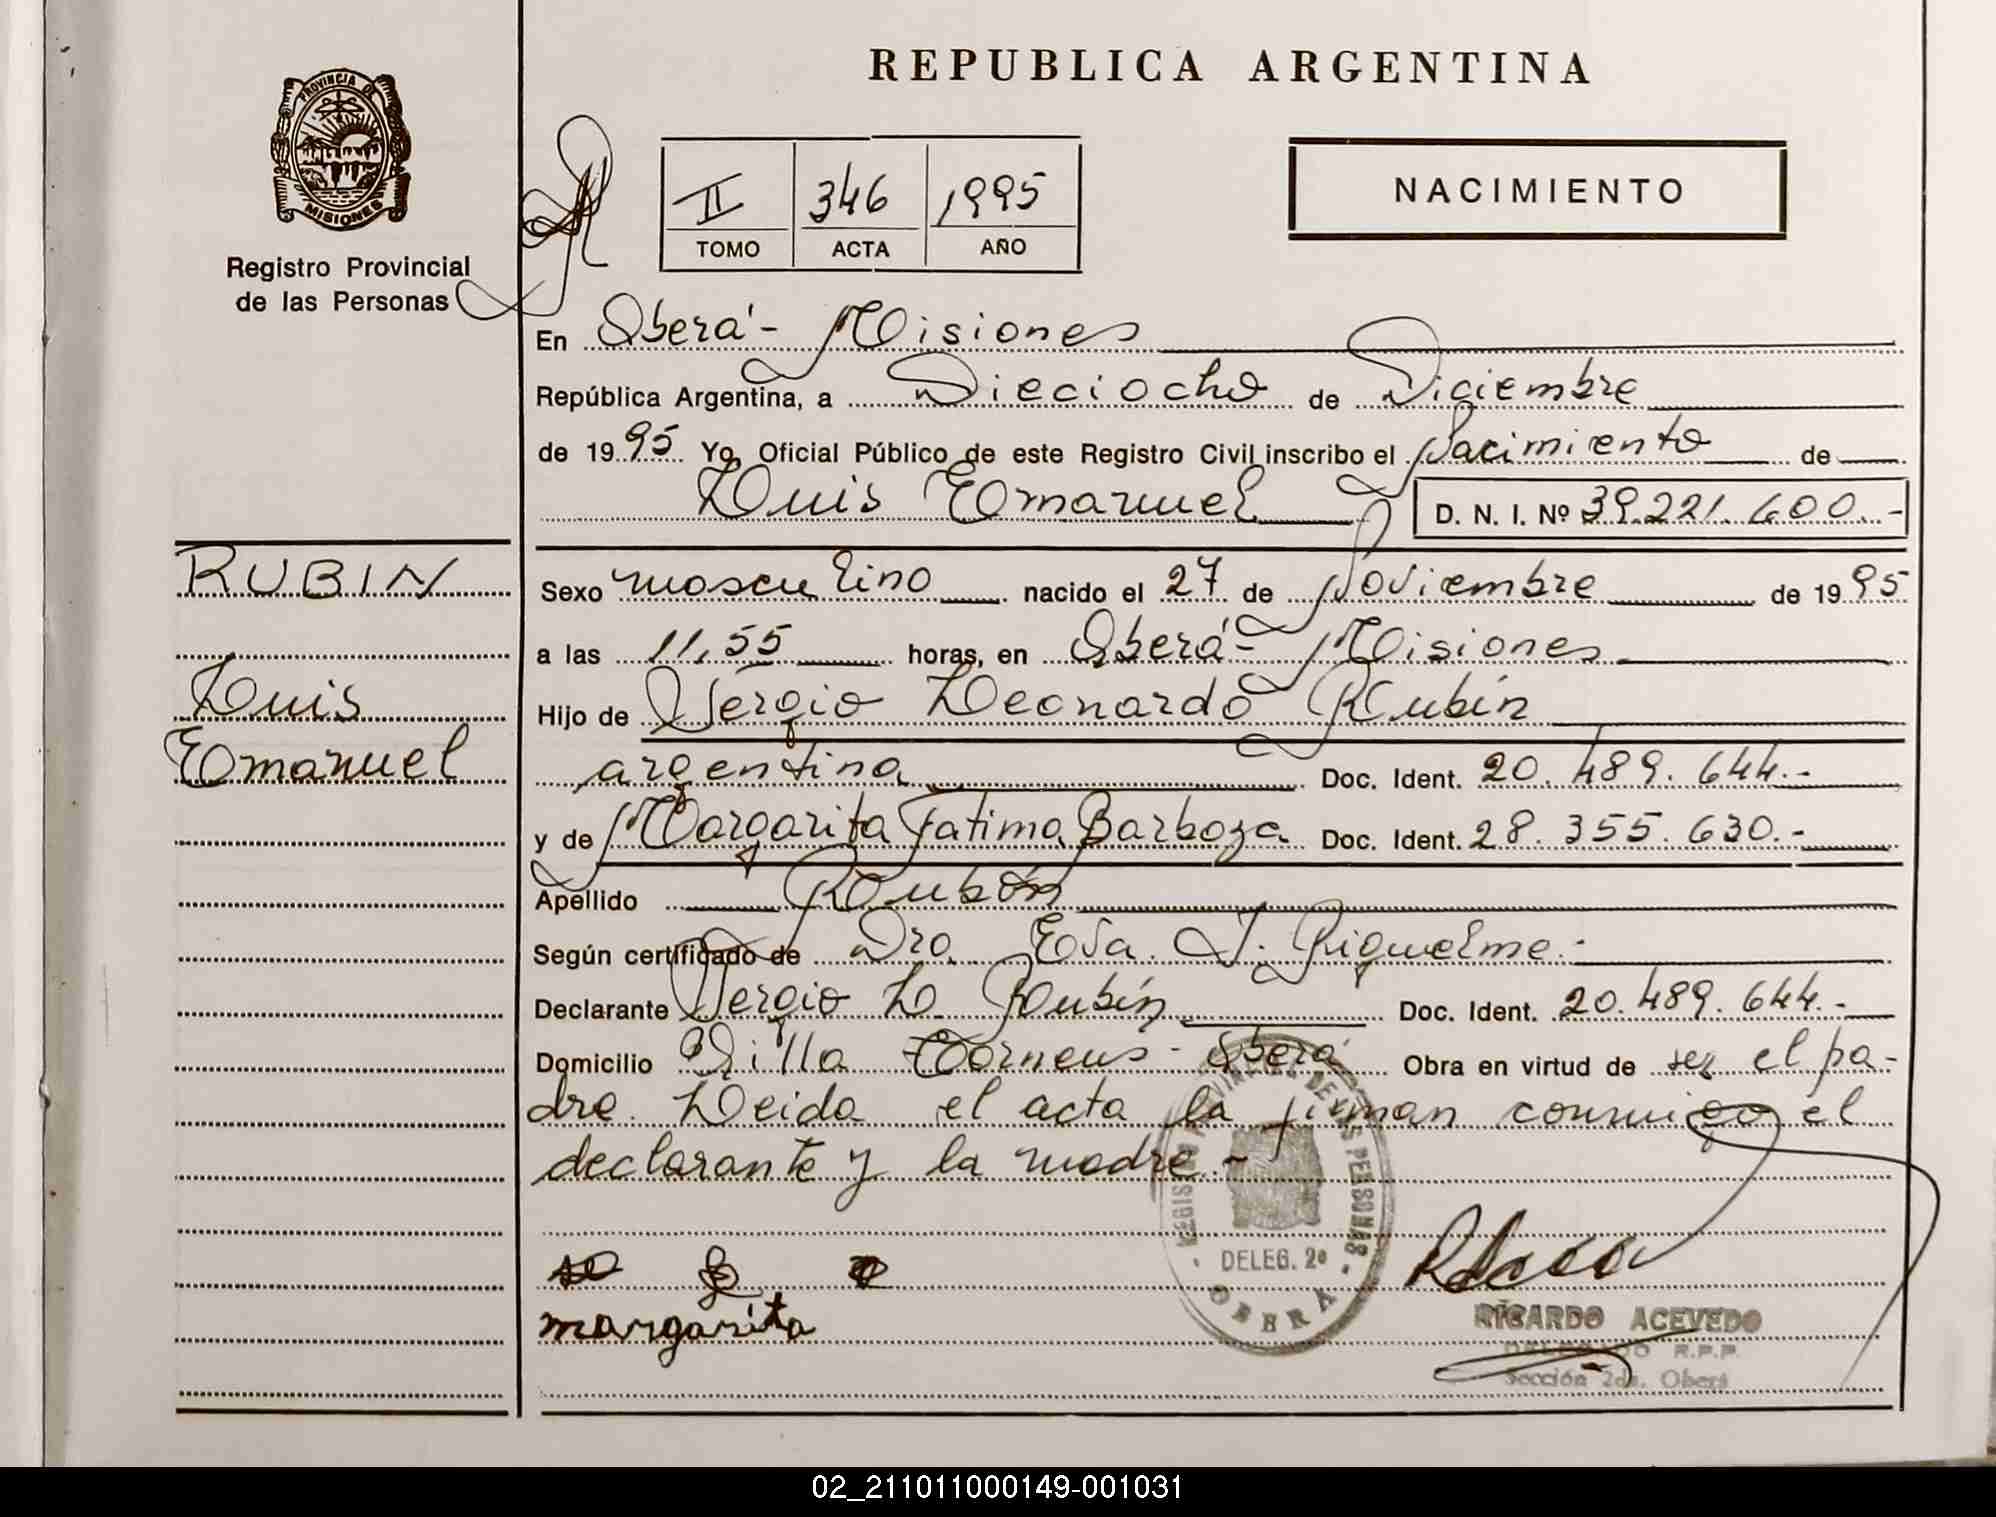 REPUBLICA ARGENTINA
PROVINCIA DE
MISIONES
Registro Provincial
de las Personas
II 346 1995
TOMO ACTA AÑO
NACIMIENTO
En Oberá - Misiones
República Argentina, a Dieciocho de Diciembre
de 1995 Yo, Oficial Público de este Registro Civil inscribo el Nacimiento de
Luis Emanuel D. N. I. Nº 39.221.600.-
RUBIN
Luis
Emanuel
Sexo masculino nacido el 27 de Noviembre de 1995
a las 11,55 horas, en Oberá - Misiones
Hijo de Sergio Leonardo Rubín
argentina Doc. Ident. 20.489.644.-
y de Margarita Fatima Barboza Doc. Ident. 28.355.630.-
Apellido Rubín
Según certificado de Dra. Eva. J. Riquelme.-
Declarante Sergio L. Rubín Doc. Ident. 20.489.644.-
Domicilio Villa Torneus - Oberá Obra en virtud de ser el pa-
dre. Leida el acta la firman conmigo el
declarante y la madre.-
REGISTRO PROVINCIAL DE LAS PERSONAS
DELEG. 2ª
OBERA
margarita
RICARDO ACEVEDO
DELEGADO R.P.P.
Sección 2da. Oberá
02_211011000149-001031